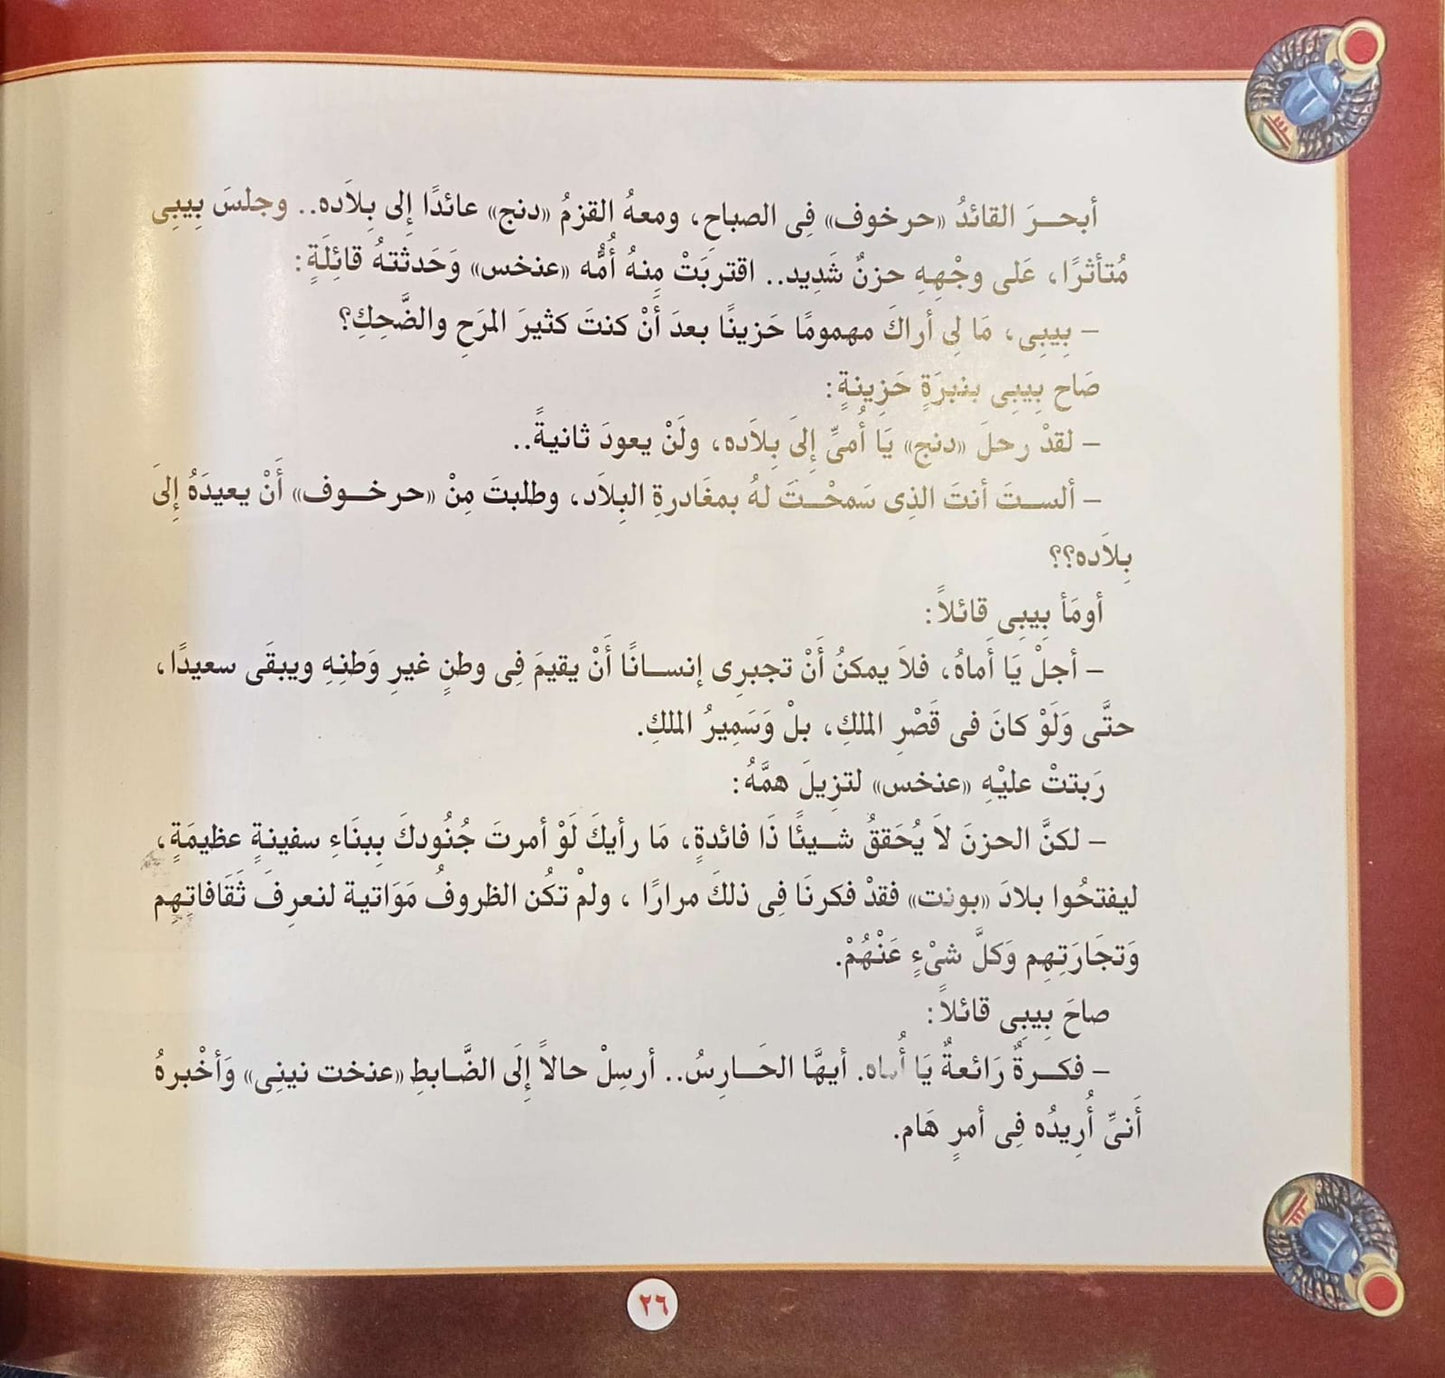 أبحـــرَ القائدُ «حرخوف» فِى الصباحِ، ومعهُ القزمُ «دنج» عائدًا إِلى بِلاَده.. وجلسَ بِيبِى
مُتأثرًا، عَلى وجْهِهِ حزنٌ شَدِيد.. اقتربَتْ مِنهُ أُمُّه «عنخس» وَحَدثتهُ قائِلَةٍ:
– بِيبِى، مَا لِى أراكَ مهمومًا حَزينًا بعدَ أَنْ كنتَ كثيرَ المرَحِ والضَّحِكِ؟
صَاح بِيبِى بنبرَةٍ حَزِينةٍ:
– لقدْ رحلَ «دنج» يَا أُمىِّ إِلىَ بِلاَده، ولَنْ يعودَ ثانيةً..
– ألســتَ أنتَ الذِى سَمحْــتَ لهُ بمغَادرةِ البِلاَد، وطلبتَ مِنْ «حرخــوف» أَنْ يعيدَهُ إِلىَ
بِلاَده؟؟
أومَأ بِيبِى قائلاً:
– أجلْ يَا أَماهُ، فلاَ يمكنُ أَنْ تجبرِى إنســانًا أَنْ يقيمَ فِى وطنٍ غيرِ وَطنِهِ ويبقَى سعيدًا،
حتَّى وَلَوْ كانَ فى قَصْرِ الملكِ، بلْ وَسَمِيرُ الملكِ.
رَبتتْ عليْهِ «عنخس» لتزِيلَ همَّهُ:
– لكنَّ الحزنَ لاَ يُحَققُ شــيئًا ذَا فائدةٍ، مَا رأيكَ لَوْ أمرتَ جُنُودكَ بِبنَاءِ سفينةٍ عظيمَةٍ،
ليفتحُوا بلادَ «بونت» فقدْ فكرنَا فِى ذلكَ مرارًا ، ولمْ تكُن الظروفُ مَوَاتية لنعرِفَ ثَقَافاتِهِم
وَتجَارَتِهِم وَكلَّ شىْءٍ عَنْهُمْ.
صاحَ بِيبِى قائلاً:
– فكـــرةٌ رَائعةٌ يَا أُماه. أيهَّا الحَــارِسُ.. أرسِلْ حالاً إِلَى الضَّابطِ «عنخت نينِى» وَأخْبرهُ
أَنىِّ أُرِيدُه فِى أمرٍ هَام.
٢٦